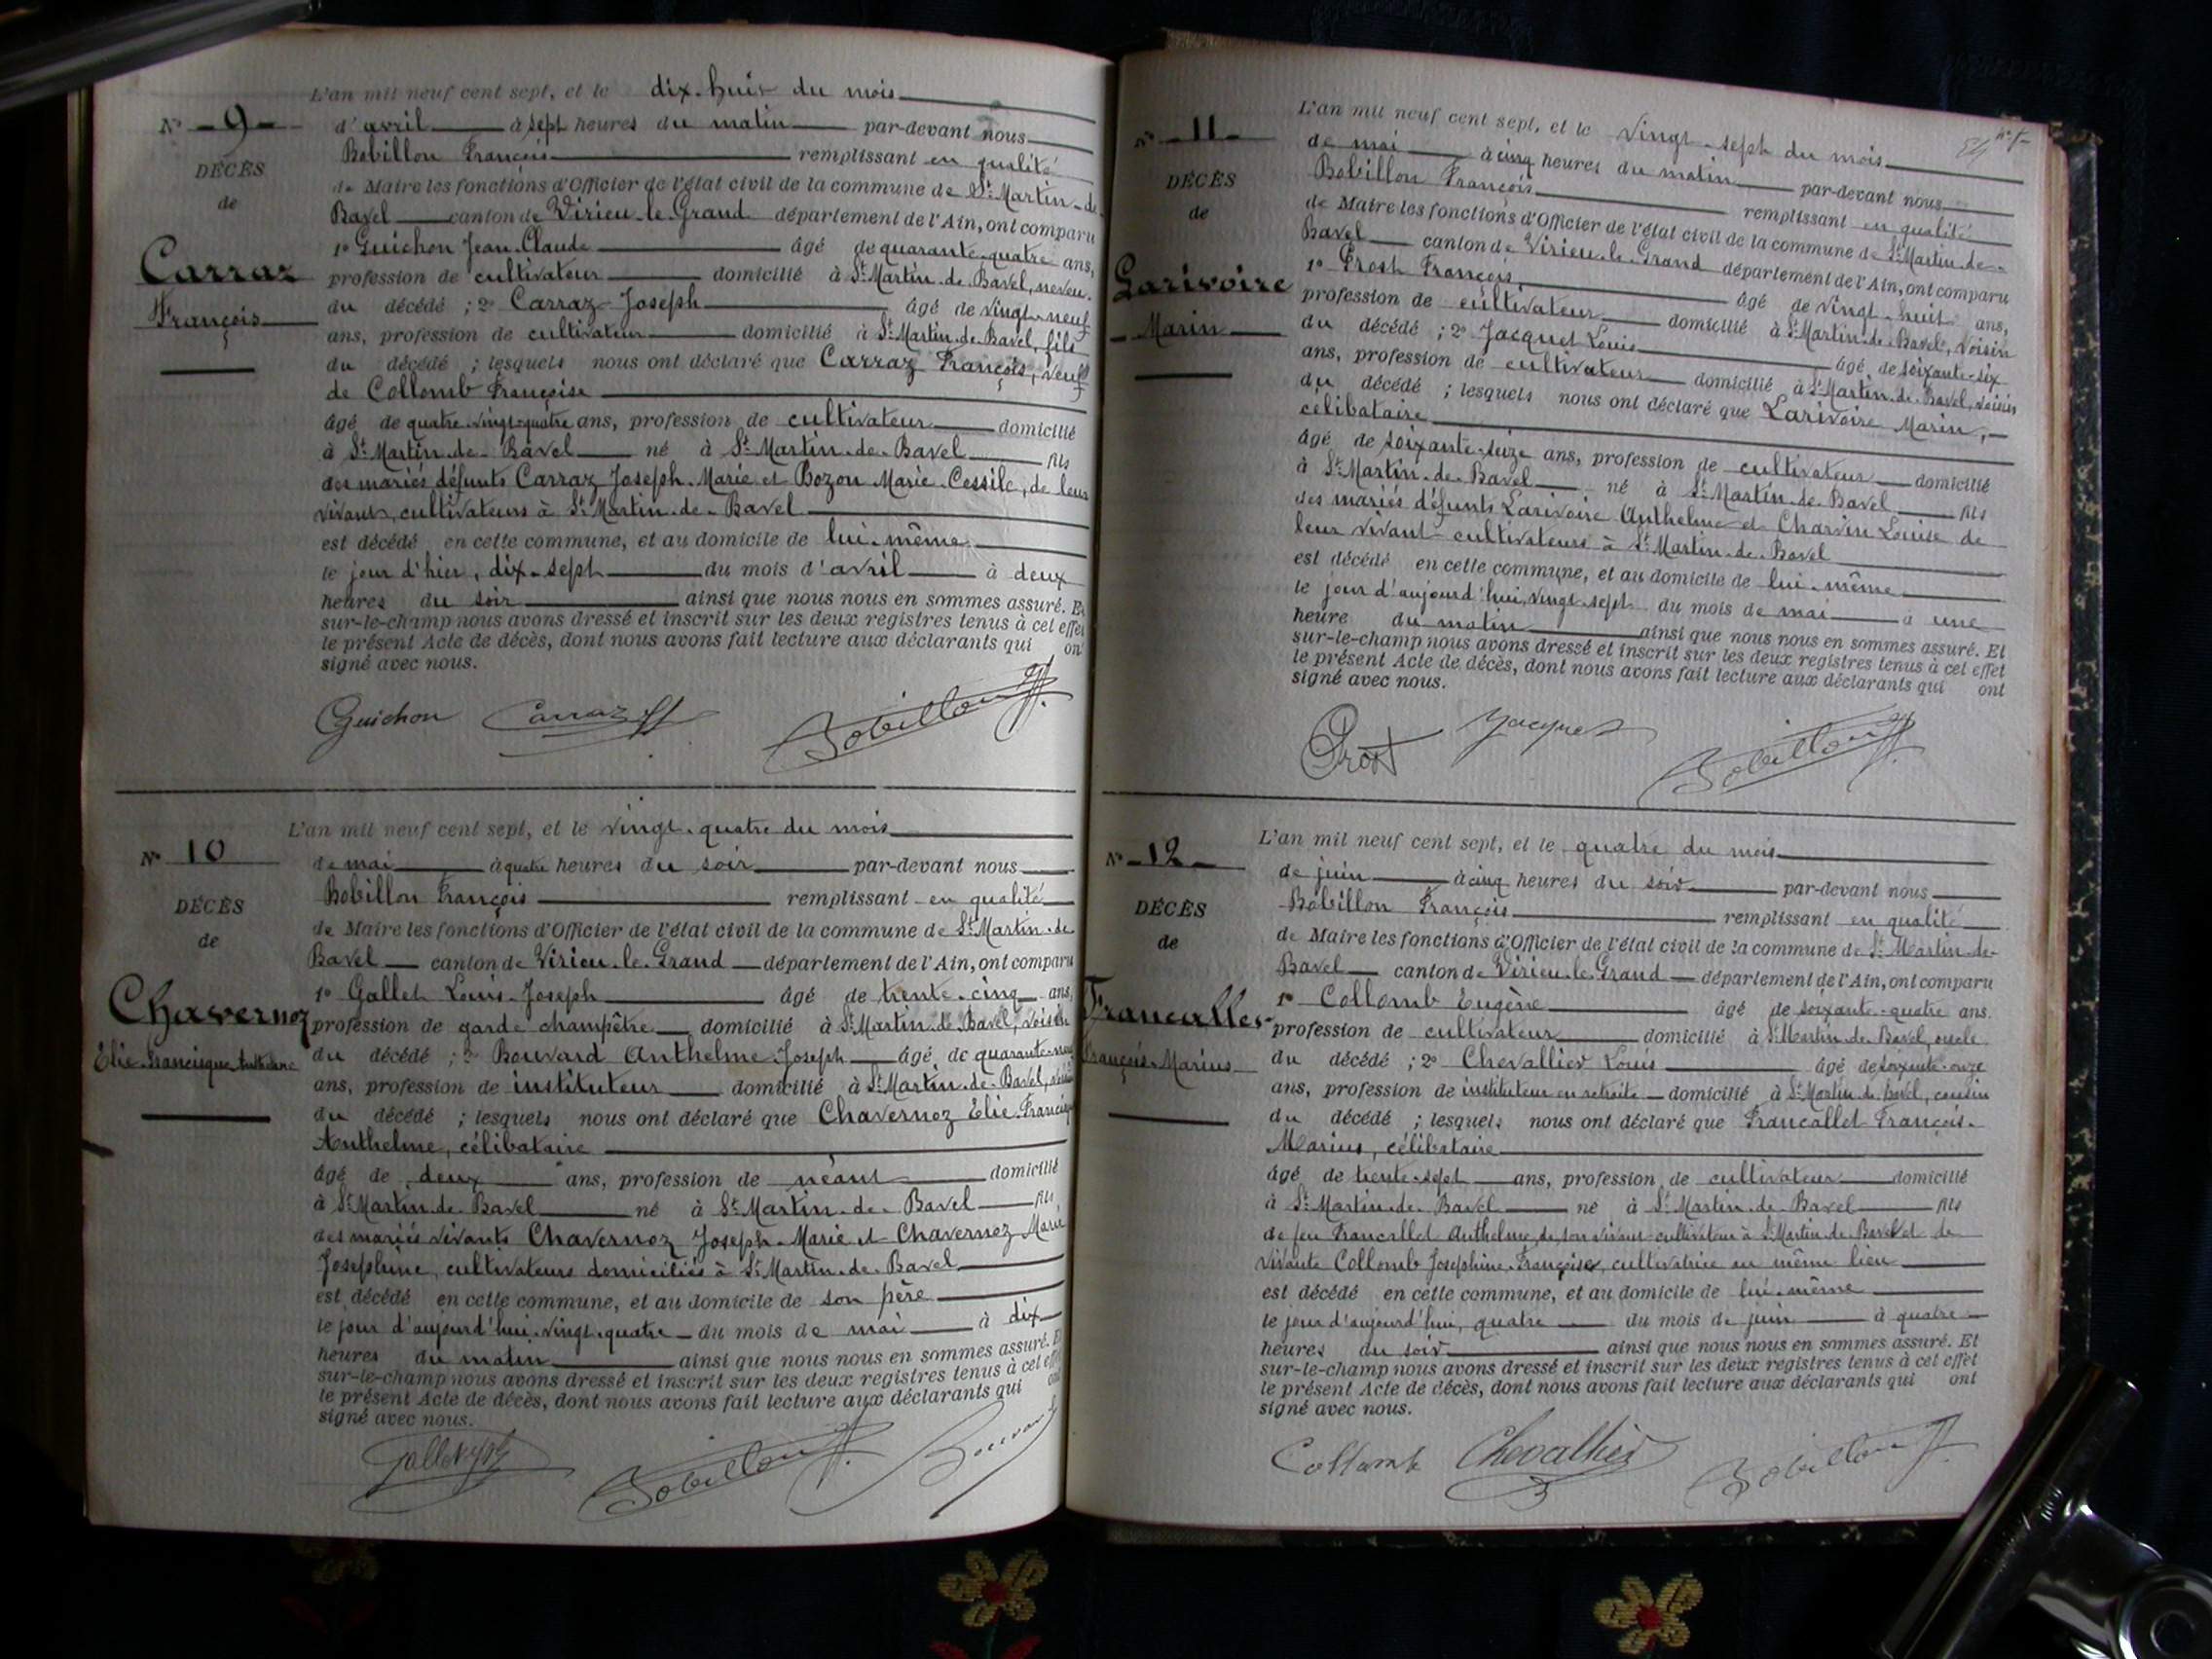 L'an mil neuf cent sept, et le dix-huit du mois
N° 9
d'avril à sept heures du matin par-devant nous
Bobillon François remplissant en qualité
DÉCÈS
de Maire les fonctions d'Officier de l'état civil de la commune de St Martin-de-
de
Bavel canton de Virieu-le-Grand département de l'Ain, ont comparu
1° Guichon Jean-Claude âgé de quarante-quatre ans,
Carraz
profession de cultivateur domicilié à St Martin-de-Bavel, neveu
François
du décédé ; 2° Carraz Joseph âgé de vingt-neuf
ans, profession de cultivateur domicilié à St Martin-de-Bavel, fils
du décédé ; lesquels nous ont déclaré que Carraz François, veuf
de Collomb Françoise
âgé de quatre-vingt-quatre ans, profession de cultivateur domicilié
à St Martin-de-Bavel né à St Martin-de-Bavel fils
des mariés défunts Carraz Joseph-Marie et Bozon Marie-Cessile, de leur
vivant, cultivateurs à St Martin-de-Bavel
est décédé en cette commune, et au domicile de lui-même
le jour d'hier, dix-sept du mois d'avril à deux
heures du soir ainsi que nous nous en sommes assuré. Et
sur-le-champ nous avons dressé et inscrit sur les deux registres tenus à cet effet
le présent Acte de décès, dont nous avons fait lecture aux déclarants qui ont
signé avec nous.
Guichon Carraz Bobillon
L'an mil neuf cent sept, et le vingt-quatre du mois
N° 10
de mai à quatre heures du soir par-devant nous
Bobillon François remplissant en qualité
DÉCÈS
de Maire les fonctions d'Officier de l'état civil de la commune de St Martin-de
de
Bavel canton de Virieu-le-Grand département de l'Ain, ont comparu
1° Gallet Louis-Joseph âgé de trente-cinq ans,
Chavernoz
profession de garde champêtre domicilié à St Martin-de-Bavel, voisin
Elie-Francisque Anthelme
du décédé ; 2° Bouvard Anthelme-Joseph âgé de quarante-neuf
ans, profession de instituteur domicilié à St Martin-de-Bavel, voisin
du décédé ; lesquels nous ont déclaré que Chavernoz Elie-Francisque
Anthelme, célibataire
âgé de deux ans, profession de néant domicilié
à St Martin-de-Bavel né à St Martin-de-Bavel fils
des mariés vivants Chavernoz Joseph-Marie et Chavernoz Marie
Joséphine, cultivateurs domiciliés à St Martin-de-Bavel
est décédé en cette commune, et au domicile de son père
le jour d'aujourd'hui vingt-quatre du mois de mai à dix
heures du matin ainsi que nous nous en sommes assuré. Et
sur-le-champ nous avons dressé et inscrit sur les deux registres tenus à cet effet
le présent Acte de décès, dont nous avons fait lecture aux déclarants qui ont
signé avec nous.
Gallet Bobillon Bouvard
L'an mil neuf cent sept, et le vingt-sept du mois
N° 11
de mai à cinq heures du matin par-devant nous
Bobillon François remplissant en qualité
DÉCÈS
de Maire les fonctions d'Officier de l'état civil de la commune de St Martin-de-
de
Bavel canton de Virieu-le-Grand département de l'Ain, ont comparu
1° Prost François âgé de vingt-huit ans,
Larivoire
profession de cultivateur domicilié à St Martin-de-Bavel, voisin
Marin
du décédé ; 2° Jacquet Louis âgé de soixante-six
ans, profession de cultivateur domicilié à St Martin-de-Bavel, voisin
du décédé ; lesquels nous ont déclaré que Larivoire Marin,
célibataire
âgé de soixante-seize ans, profession de cultivateur domicilié
à St Martin-de-Bavel né à St Martin-de-Bavel fils
des mariés défunts Larivoire Anthelme et Charvin Louise de
leur vivant cultivateurs à St Martin-de-Bavel
est décédé en cette commune, et au domicile de lui-même
le jour d'aujourd'hui, vingt-sept du mois de mai à une
heure du matin ainsi que nous nous en sommes assuré. Et
sur-le-champ nous avons dressé et inscrit sur les deux registres tenus à cet effet
le présent Acte de décès, dont nous avons fait lecture aux déclarants qui ont
signé avec nous.
Prost Jacquet Bobillon
L'an mil neuf cent sept, et le quatre du mois
N° 12
de juin à cinq heures du soir par-devant nous
Bobillon François remplissant en qualité
DÉCÈS
de Maire les fonctions d'Officier de l'état civil de la commune de St Martin-de-
de
Bavel canton de Virieu-le-Grand département de l'Ain, ont comparu
1° Collomb Eugène âgé de soixante-quatre ans.
Francallet
profession de cultivateur domicilié à St Martin-de-Bavel, oncle
François-Marius
du décédé ; 2° Chevallier Louis âgé de soixante-onze
ans, profession de instituteur en retraite domicilié à St Martin-de-Bavel, cousin
du décédé ; lesquels nous ont déclaré que Francallet François-
Marius, célibataire
âgé de trente-sept ans, profession de cultivateur domicilié
à St Martin-de-Bavel né à St Martin-de-Bavel fils
de feu Francallet Anthelme, de son vivant cultivateur à St Martin-de-Bavel et de
vivante Collomb Joséphine-Françoise, cultivatrice au même lieu
est décédé en cette commune, et au domicile de lui-même
le jour d'aujourd'hui, quatre du mois de juin à quatre
heures du soir ainsi que nous nous en sommes assuré. Et
sur-le-champ nous avons dressé et inscrit sur les deux registres tenus à cet effet
le présent Acte de décès, dont nous avons fait lecture aux déclarants qui ont
signé avec nous.
Collomb Chevallier Bobillon